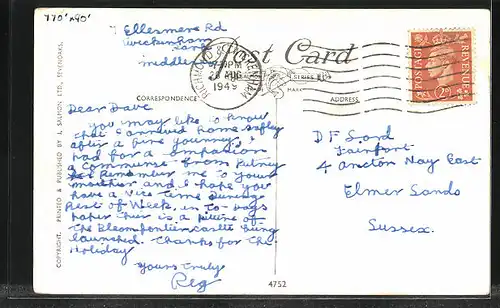 770'x90'
7 Ellesmere Rd
Twickenham
middle
Post Card
RICHMOND & TWICKENHAM
7 PM
26 AUG
1949
POSTAGE
REVENUE
2D
CORRESPONDENCE
ADDRESS
SERIES
Dear Dave
you may like to know
that I arrived home safly
after a fine journey I
had for a companion
a Commerse from Putney
Remember me to your
mother and I hope you
have a nice time during
Rest of Week. in To-days
Paper their is a picture of
The Bloemfontien castle being
launched. Thanks for The
Holiday
yours truly
Reg
D F Sord
Fairport
4 Ancton Way East
Elmer Sands
Sussex.
COPYRIGHT. PRINTED & PUBLISHED BY J. SALMON LTD., SEVENOAKS.
4752